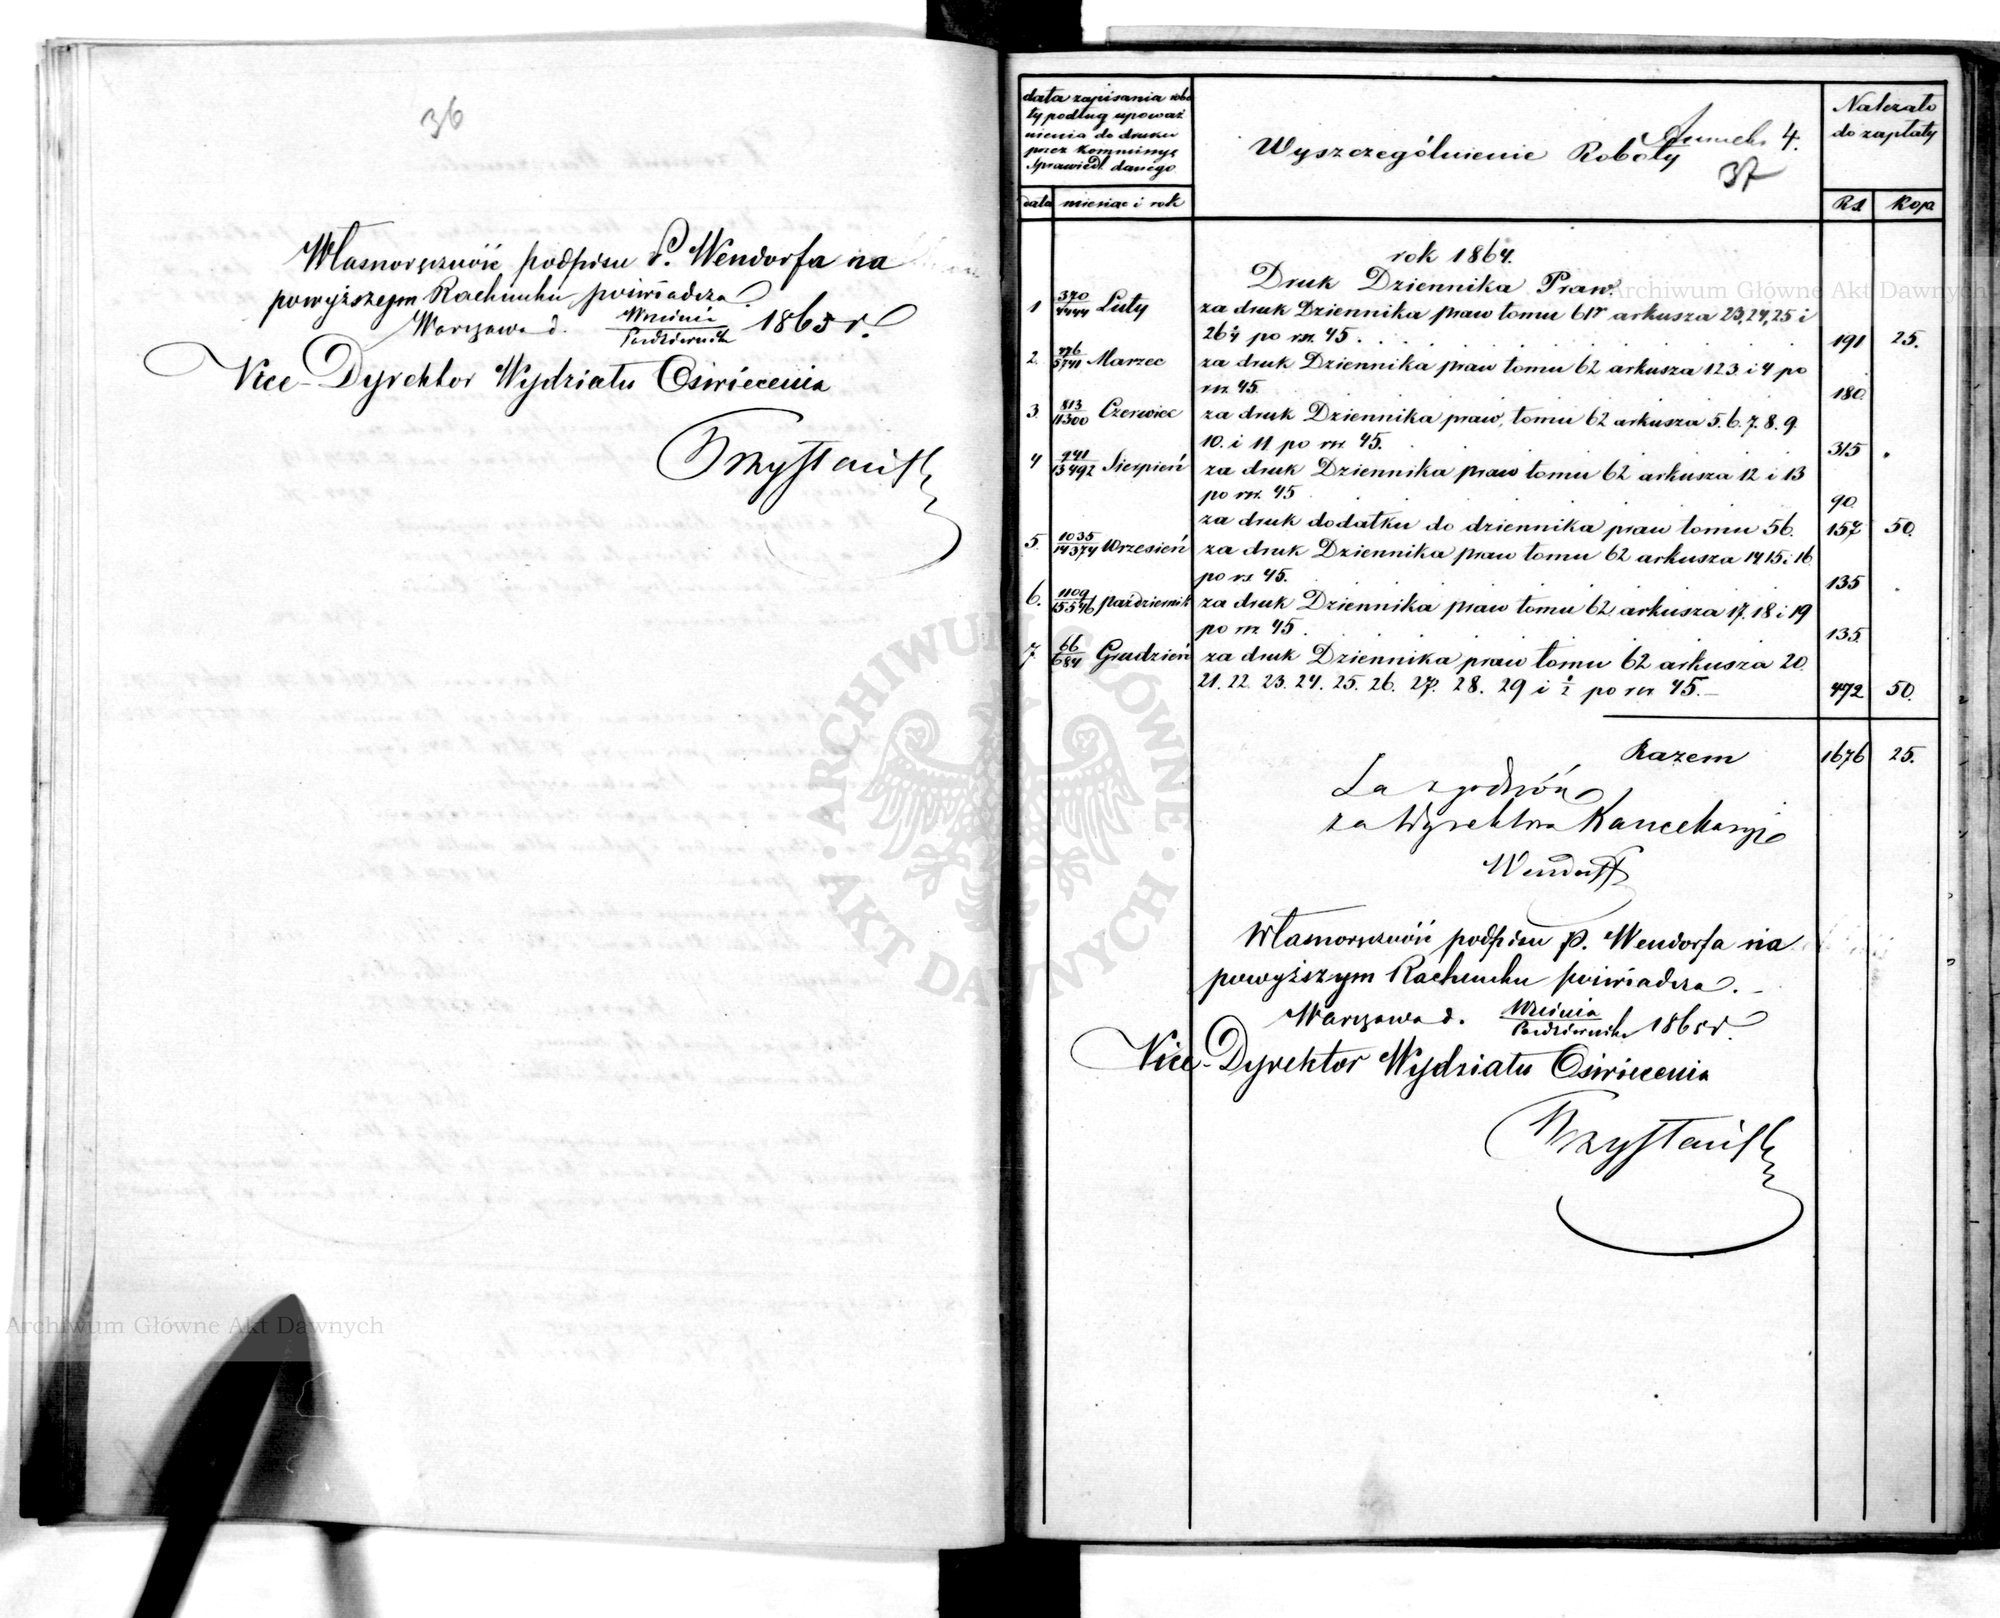 36
Własnoręczność podpisu P. Wendorfa na
powyższym Rachunku poświadcza.
Warszawa d. Września / Października 1865 r.
Vice-Dyrektor Wydziału Oświecenia
data zapisania robo
ty podług upoważ
nienia do druku
przez Kommissyę
Sprawiedl. danego
Wyszczególnienie Roboty
Anneks 4.
37
Należało
do zapłaty
data miesiąc i rok
Rs. Kop
rok 1864.
Druk Dziennika Praw.
1 370/4444 Luty za druk Dziennika praw tomu 61go arkusza 23, 24, 25 i
26 1/4 po rsr. 45. 191 25.
2. 476/5741 Marzec za druk Dziennika praw tomu 62 arkusza 1 2 3. i 4 po
rsr. 45. 180.
3. 813/11300 Czerwiec za druk Dziennika praw, tomu 62 arkusza 5. 6. 7. 8. 9.
10. i 11 po rsr. 45. 315 .
4 941/13492 Sierpień za druk Dziennika praw tomu 62 arkusza 12 i 13
po rsr. 45 90.
za druk dodatku do dziennika praw tomu 56. 157 50.
5. 1035/14374 Wrzesień za druk Dziennika praw tomu 62 arkusza 14 15 i 16
po rs. 45. 135 .
6. 1109/15546 październik za druk Dziennika praw tomu 62 arkusza 17. 18 i 19
po rsr. 45. 135.
7 66/684 Grudzień za druk Dziennika praw tomu 62 arkusza 20.
21. 22. 23. 24. 25. 26. 27. 28. 29 i 1/2 po rsr 45. 472 50.
Razem 1676 25.
Za zgodność
za Dyrektora Kancelaryi
Wendorff
Własnoręczność podpisu P. Wendorfa na
powyższym Rachunku poświadcza.
Warszawa d. Września / Października 1865 r.
Vice-Dyrektor Wydziału Oświecenia
Archiwum Główne Akt Dawnych
ARCHIWUM GŁÓWNE · AKT DAWNYCH ·
Archiwum Główne Akt Dawnych